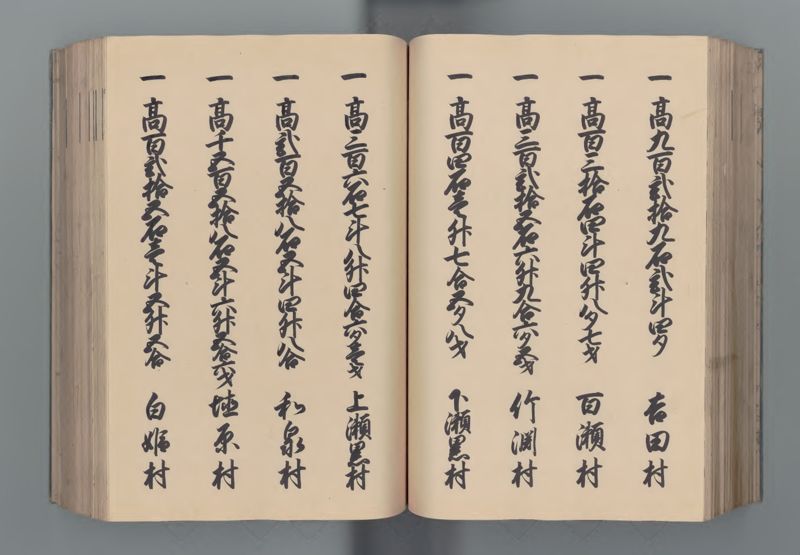 一 高九百弐拾九石弐斗四夕 吉田村
一 高百三拾石四斗四升八夕七才 百瀬村
一 高三百弐拾五石六升九合六夕五才 竹渕村
一 高百四石壱升七合五夕八才 下瀬黒村
一 高三百六石七斗八升四合六夕壱才 上瀬黒村
一 高弐百五拾八石五斗四升八合 和泉村
一 高千五百五拾八石五斗六升五合六才 埴原村
一 高百弐拾五石壱斗五升五合 白姫村